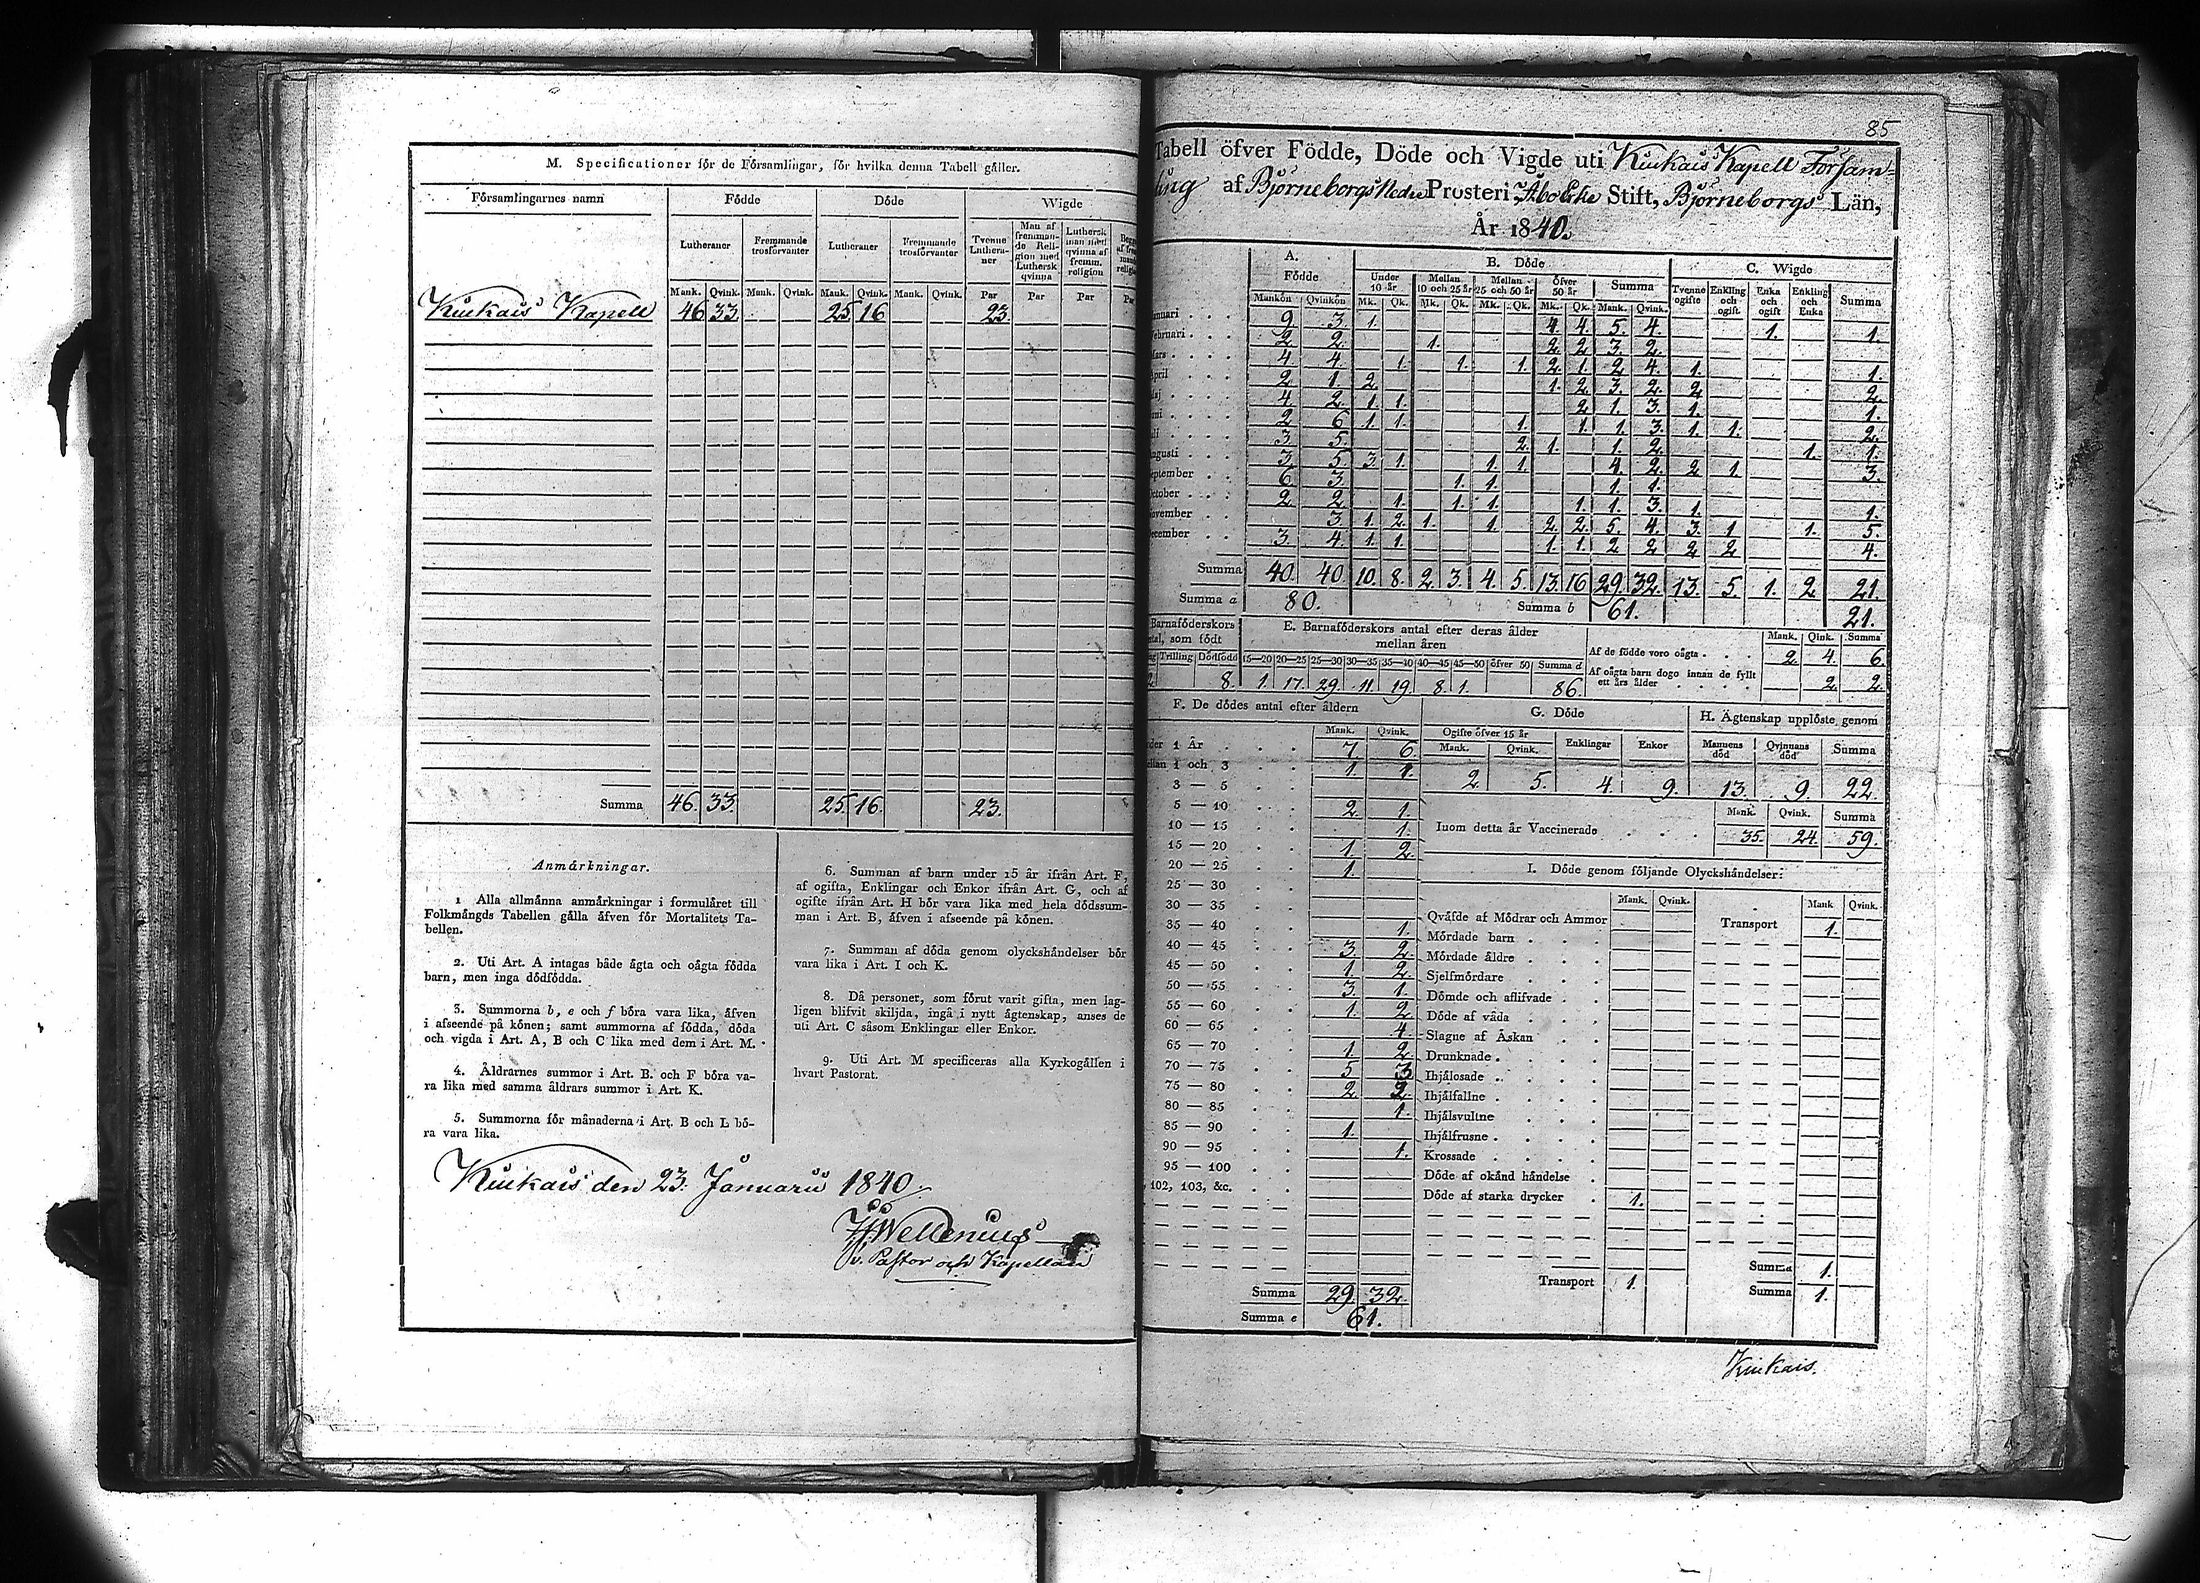 M. Specificationer för de Församlingar, för hvilka denna Tabell gäller.
Församlingarnes namn Födde Döde Wigde
Lutheraner Fremmande trosförvanter Lutheraner Fremmande trosförvanter Tvenne Lutheraner Man af fremmande Religion med Luthersk qvinna Luthersk man med qvinna af fremm. religion
Mank. Qvink. Mank. Qvink. Mank. Qvink. Mank. Qvink. Par Par Par
Kiukais Kapell 46 33 25 16 23
Summa 46. 33. 25. 16. 23.
Anmärkningar.
1 Alla allmänna anmärkningar i formuläret till
Folkmängds Tabellen gälla äfven för Mortalitets Ta-
bellen.
2. Uti Art. A intagas både ägta och oägta födda
barn, men inga dödfödda.
3. Summorna b, e och f böra vara lika, äfven
i afseende på könen; samt summorna af födda, döda
och vigda i Art. A, B och C lika med dem i Art. M.
4. Åldrarnes summor i Art. B. och F böra va-
ra lika med samma åldrars summor i Art. K.
5. Summorna för månaderna i Art. B och L bö-
ra vara lika.
6. Summan af barn under 15 år ifrån Art. F,
af ogifta, Enklingar och Enkor ifrån Art. G, och af
ogifte ifrån Art. H bör vara lika med hela dödssum-
man i Art. B, äfven i afseende på könen.
7. Summan af döda genom olyckshändelser bör
vara lika i Art. I och K.
8. Då personer, som förut varit gifta, men lag-
ligen blifvit skiljda, ingå i nytt ägtenskap, anses de
uti Art. C såsom Enklingar eller Enkor.
9. Uti Art. M specificeras alla Kyrkogällen i
hvart Pastorat.
Kiukais den 23. Januarii 1840.
Wellenius
v. Pastor och Kapellan
85
Tabell öfver Födde, Döde och Vigde uti Kiukais Kapell Församling
af Björneborgs Nedre Prosteri, Åbo Erke Stift, Björneborgs Län,
År 1840.
A. Födde B. Döde C. Wigde
Under 10 år Mellan 10 och 25 år Mellan 25 och 50 år Öfver 50 år Summa Tvenne ogifte Enkling och ogift Enka och ogift Enkling och Enka Summa
Mankön Qvinkön Mk. Qk. Mk. Qk. Mk. Qk. Mk. Qk. Mank. Qvink.
9. 3. 1. 4. 4. 5. 4. 1. 1.
2 2. 1. 2 2 3. 2.
4 4. 1. 1. 1. 2. 1. 2 4. 1. 1.
April 2. 1. 2. 1. 2. 3. 2. 2 2.
4 2. 1. 1. 2. 1. 3. 1. 1.
2 6. 1. 1. 1. 1. 1. 3. 1. 1. 2.
3. 5. 2. 1. 1. 2. 1. 1.
3. 5. 3. 1. 1. 1. 4. 2. 2 1 3.
September 6. 3. 1. 1. 1. 1.
October 2. 2. 1. 1. 1. 1. 1. 3. 1. 1.
November 3. 1. 2. 1. 1. 2. 2. 5. 4. 3. 1 1. 5.
December 3. 4. 1. 1. 1. 1. 2 2 2 2 4.
Summa 40. 40 10. 8. 2. 3. 4. 5. 13. 16 29. 32. 13. 5. 1. 2 21.
Summa a 80. Summa b 61. 21.
Barnaföderskors antal, som födt
Trilling Dödfödd
2. 8.
E. Barnaföderskors antal efter deras ålder
mellan åren
15—20 20—25 25—30 30—35 35—40 40—45 45—50 öfver 50 Summa d
1. 17. 29. 11. 19. 8. 1. 86.
Mank. Qink. Summa
Af de födde voro oägta 2. 4. 6.
Af oägta barn dogo innan de fyllt ett års ålder 2. 2.
F. De dödes antal efter åldern
Mank. Qvink.
under 1 År 7 6.
Mellan 1 och 3 1. 1.
3 — 5
5 — 10 2. 1.
10 — 15 1.
15 — 20 1. 2.
20 — 25 1.
25 — 30
30 — 35
35 — 40 1.
40 — 45 3. 2.
45 — 50 1. 2.
50 — 55 3. 1.
55 — 60 1. 2
60 — 65 4.
65 — 70 1. 2.
70 — 75 5 3
75 — 80 2. 2.
80 — 85 1.
85 — 90 1.
90 — 95 1.
95 — 100
102, 103, &c.
Summa 29. 32.
Summa e 61.
G. Döde
Ogifte öfver 15 år Enklingar Enkor
Mank. Qvink.
2. 5. 4. 9.
H. Ägtenskap upplöste genom
Mannens död Qvinnans död Summa
13. 9. 22.
Mank. Qvink. Summa
Inom detta år Vaccinerade 35. 24. 59.
I. Döde genom följande Olyckshändelser:
Mank. Qvink. Mank Qvink.
Qväfde af Mödrar och Ammor Transport 1.
Mördade barn
Mördade äldre
Sjelfmördare
Dömde och aflifvade
Döde af våda
Slagne af Åskan
Drunknade
Ihjälosade
Ihjälfallne
Ihjälsvultne
Ihjälfrusne
Krossade
Döde af okänd händelse
Döde af starka drycker 1.
Summa 1.
Transport 1. Summa 1.
Kiukais.